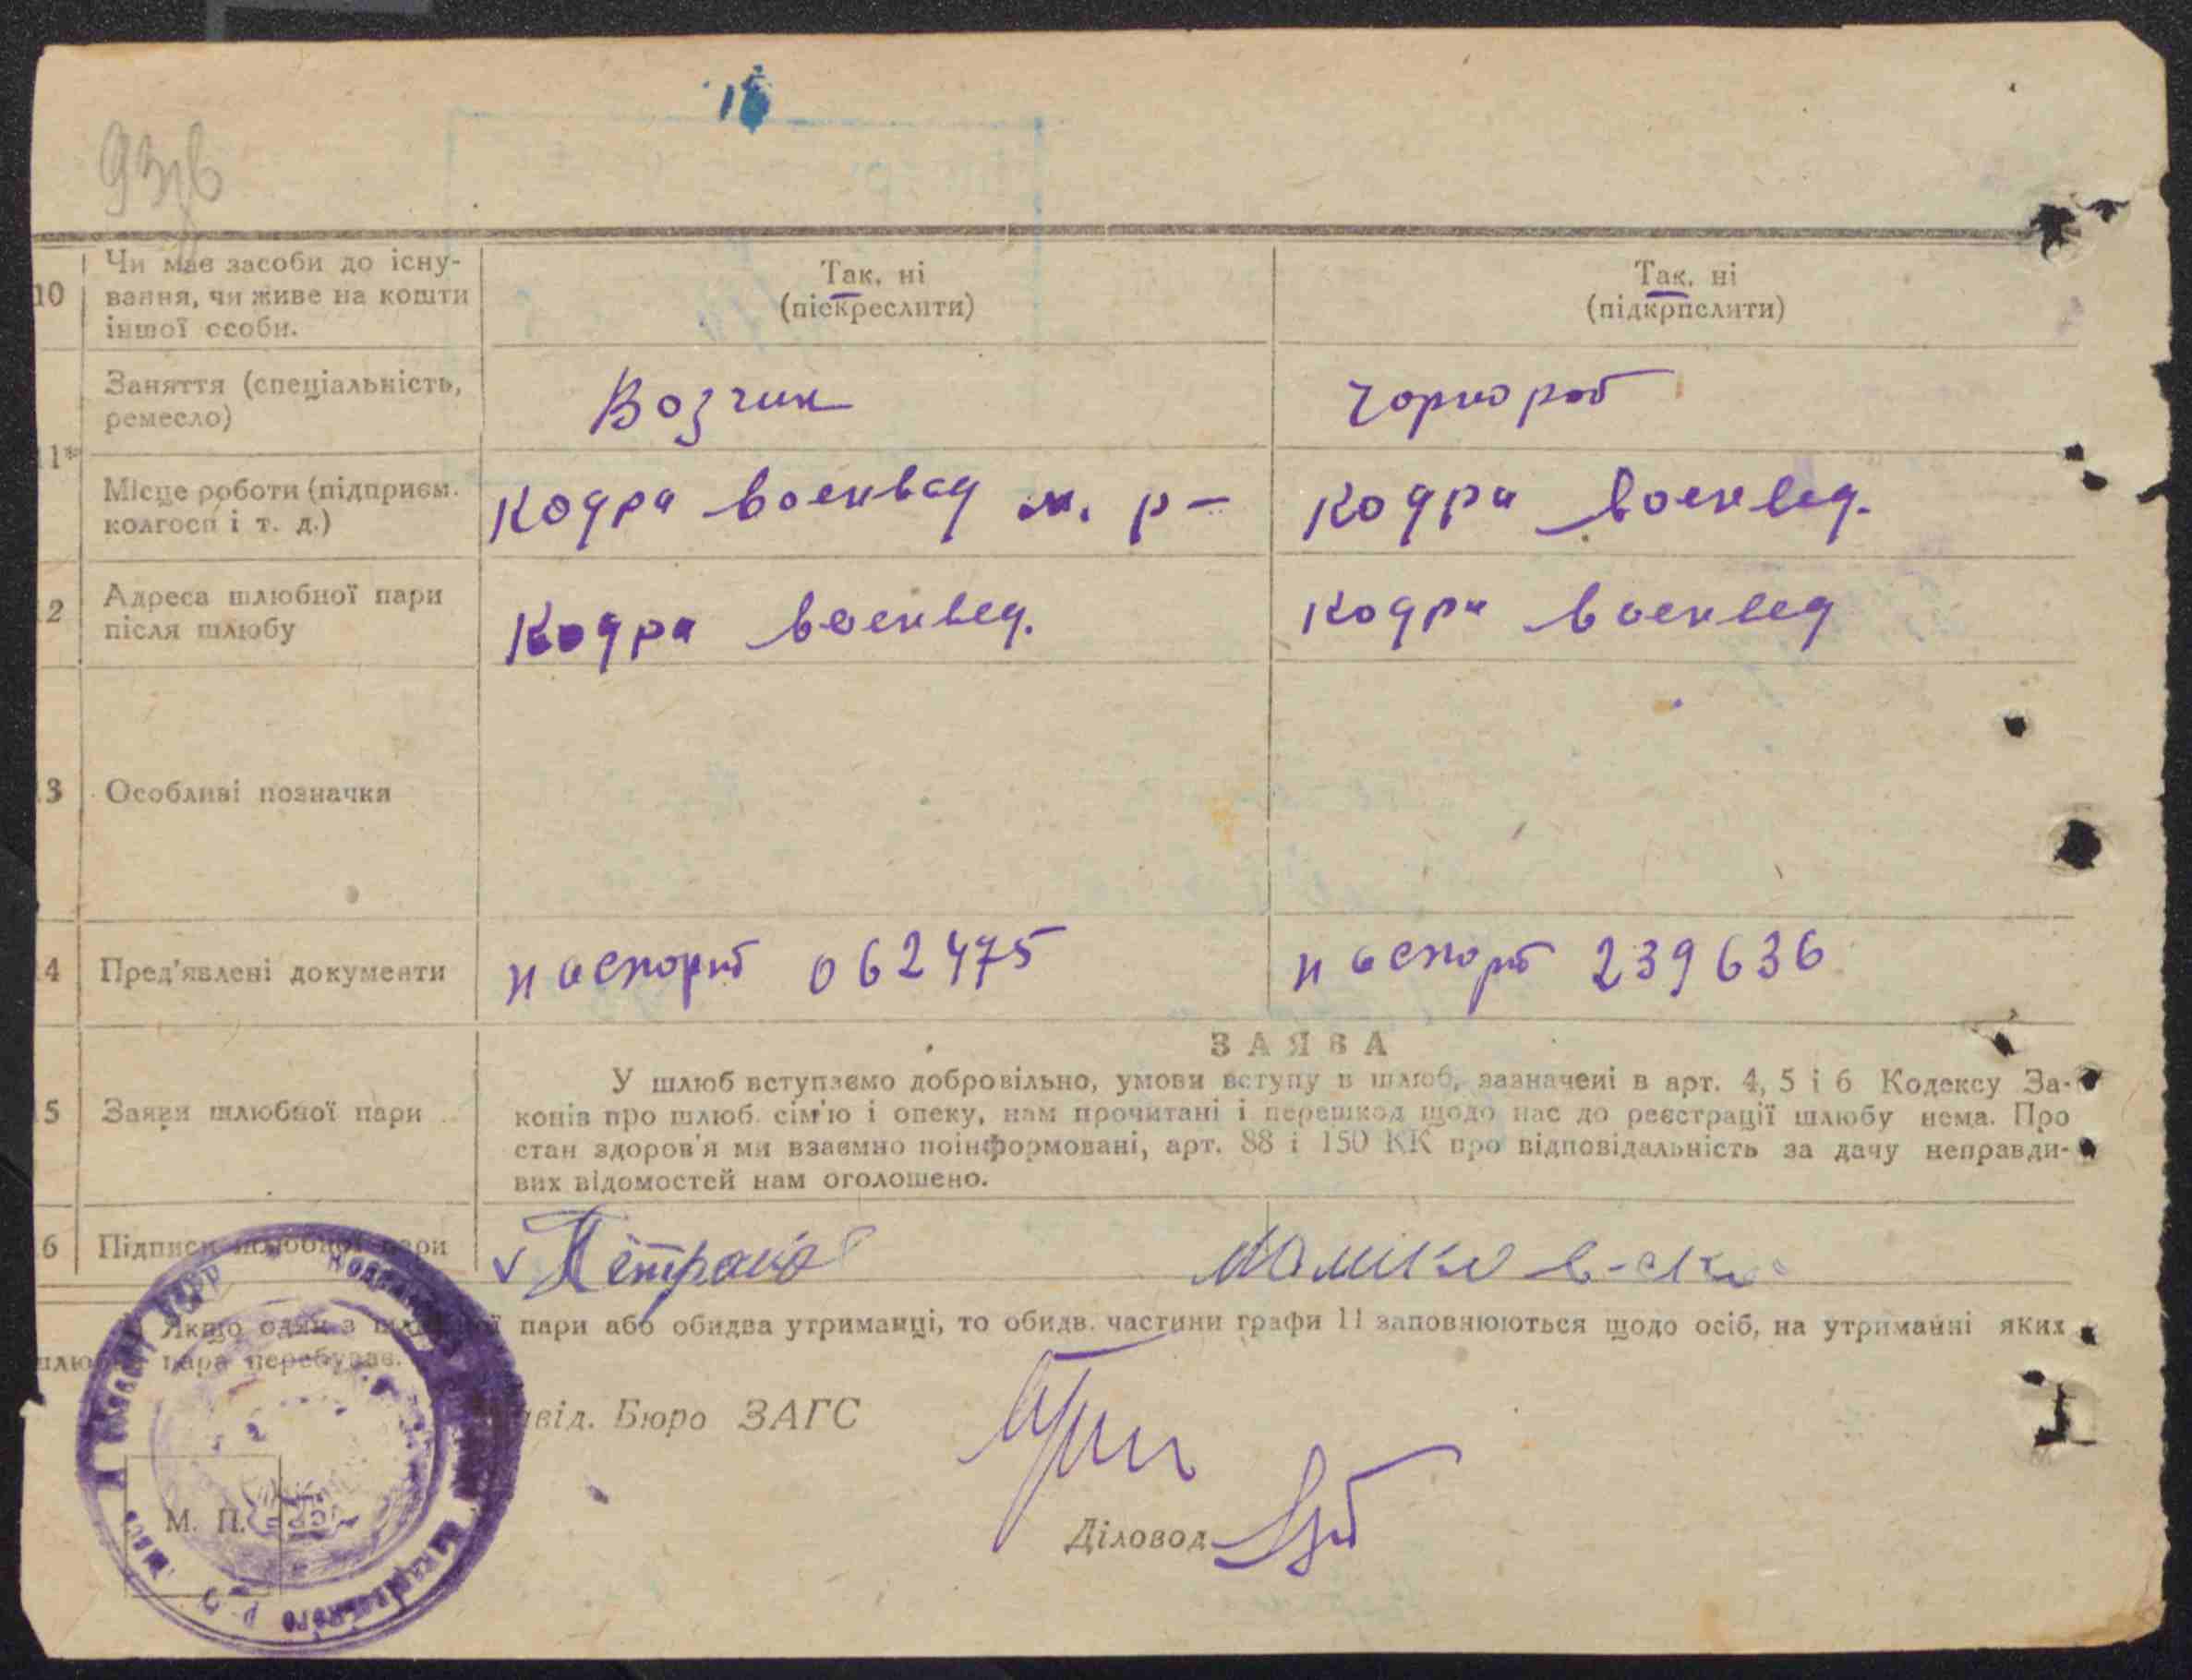 10 Чи має засоби до існу-
вання, чи живе на кошти
іншої особи.
Так, ні
(піекреслити)
Так, ні
(підкрпслити)
11*
Заняття (спеціальність,
ремесло)
Возчик
Чорнороб
Місце роботи (підприєм.
колгосп і т. д.)
Кодра военвед м. р-
Кодра военвед.
2 Адреса шлюбної пари
після шлюбу
Кодра военвед.
Кодра военвед
3 Особливі позначки
4 Пред'явлені документи
паспорт 062475
паспорт 239636
5 Заяви шлюбної пари
ЗАЯВА
У шлюб вступаємо добровільно, умови вступу в шлюб, зазначені в арт. 4, 5 і 6 Кодексу За-
конів про шлюб. сім'ю і опеку, нам прочитані і перешкод щодо нас до реєстрації шлюбу нема. Про
стан здоров'я ми взаємно поінформовані, арт. 88 і 150 КК про відповідальність за дачу неправди-
вих відомостей нам оголошено.
6 Підписи шлюбної пари
Якщо один з шлюбної пари або обидва утриманці, то обидв. частини графи 11 заповнюються щодо осіб, на утриманні яких
шлюбна пара перебуває.
Завід. Бюро ЗАГС
М. П.
Діловод